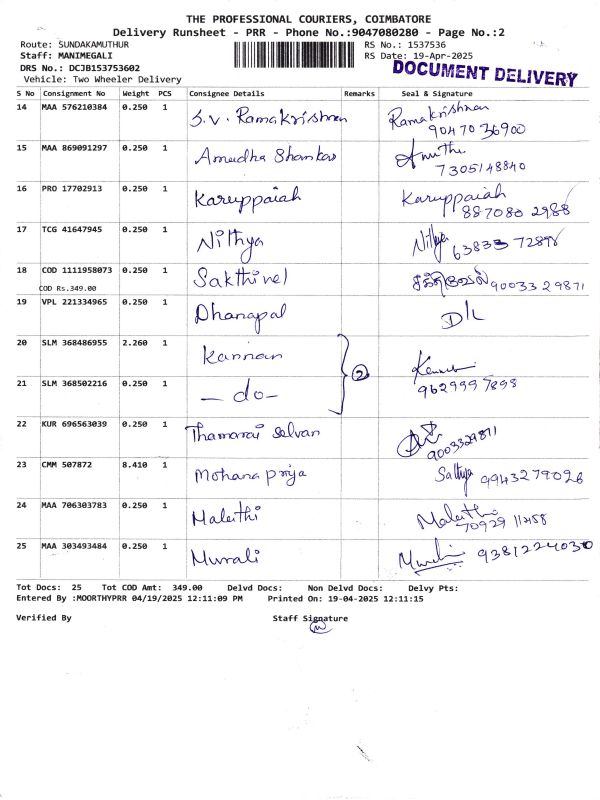 THE PROFESSIONAL COURIERS, COIMBATORE
Delivery Runsheet - PRR - Phone No.:9047080280 - Page No.:2
Route: SUNDAKAMUTHUR RS No.: 1537536
Staff: MANIMEGALI RS Date: 19-Apr-2025
DRS No.: DCJB153753602 DOCUMENT DELIVERY
Vehicle: Two Wheeler Delivery
S No Consignment No Weight PCS Consignee Details Remarks Seal & Signature
14 MAA 576210384 0.250 1 S.V. Ramakrishnan Ramakrishnan
90470 36900
15 MAA 869091297 0.250 1 Amudha Shankar Amutha
7305148840
16 PRO 17702913 0.250 1 Karuppaiah Karuppaiah
887080 2988
17 TCG 41647945 0.250 1 Nithya Nithya 63833 72898
18 COD 1111958073 0.250 1 Sakthivel சக்திவேல் 90033 29871
COD Rs.349.00
19 VPL 221334965 0.250 1 Dhanapal D/L
20 SLM 368486955 2.260 1 Kannan
2
21 SLM 368502216 0.250 1 — do — 9629997898
22 KUR 696563039 0.250 1 Thamarai Selvan 9003329871
23 CMM 507872 8.410 1 Mohana priya Sathya 9943279026
24 MAA 706303783 0.250 1 Malathi Malathi
70929 11458
25 MAA 303493484 0.250 1 Murali 9381224030
Tot Docs: 25 Tot COD Amt: 349.00 Delvd Docs: Non Delvd Docs: Delvy Pts:
Entered By :MOORTHYPRR 04/19/2025 12:11:09 PM Printed On: 19-04-2025 12:11:15
Verified By Staff Signature